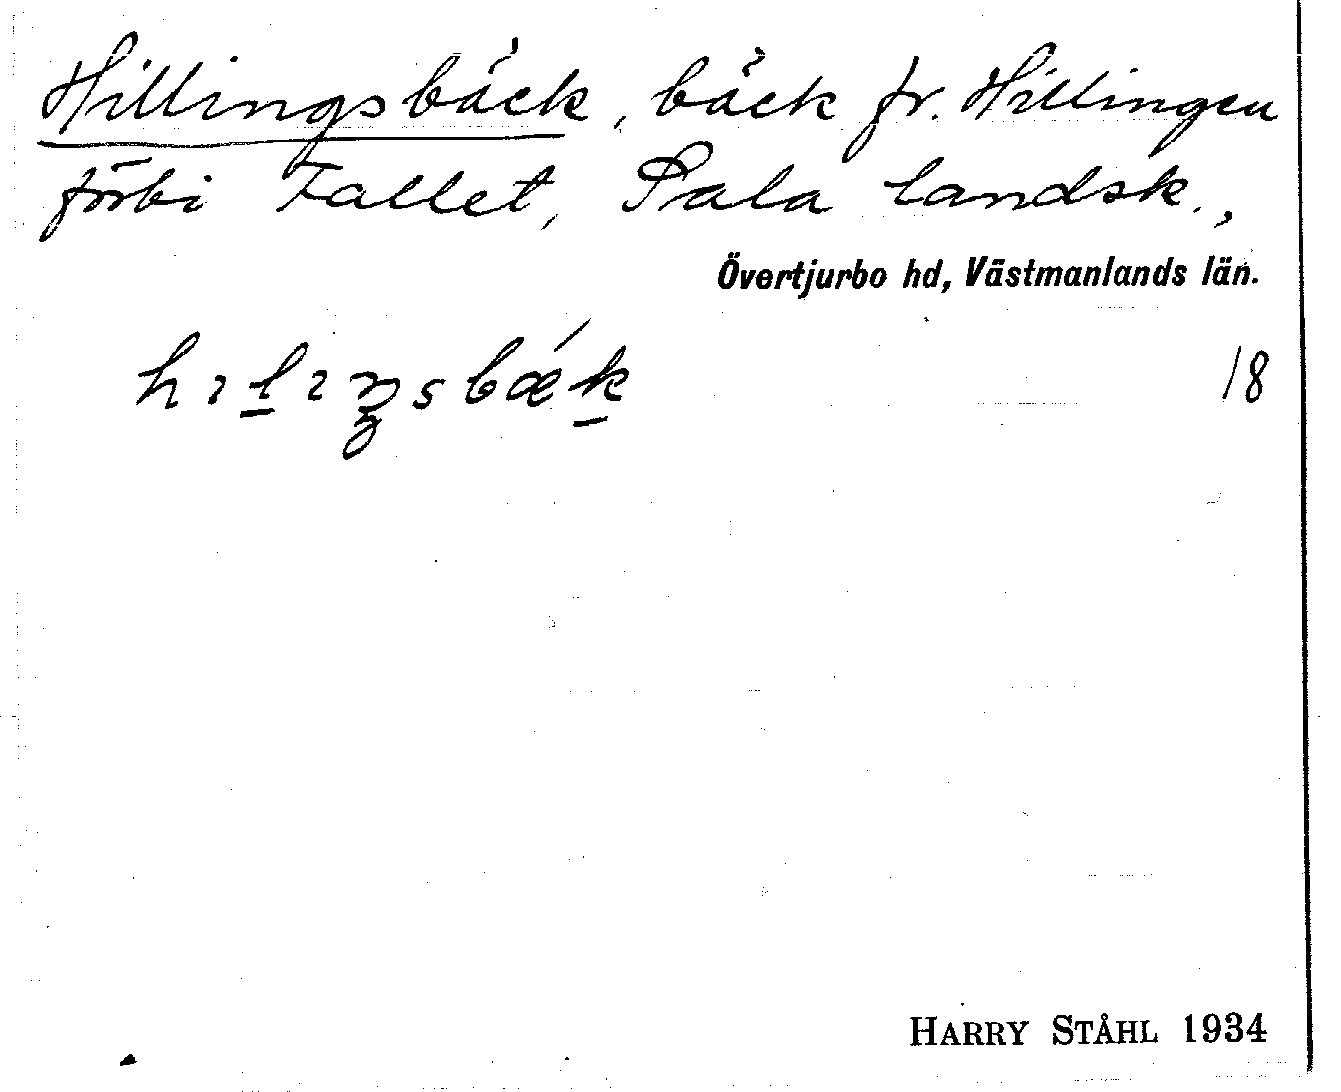 Hillingsbäck, bäck fr. Hillingen
förbi Fallet, Sala landsk.,
Övertjurbo hd, Västmanlands län.
hılıŋsbǽk 18
HARRY STÅHL 1934